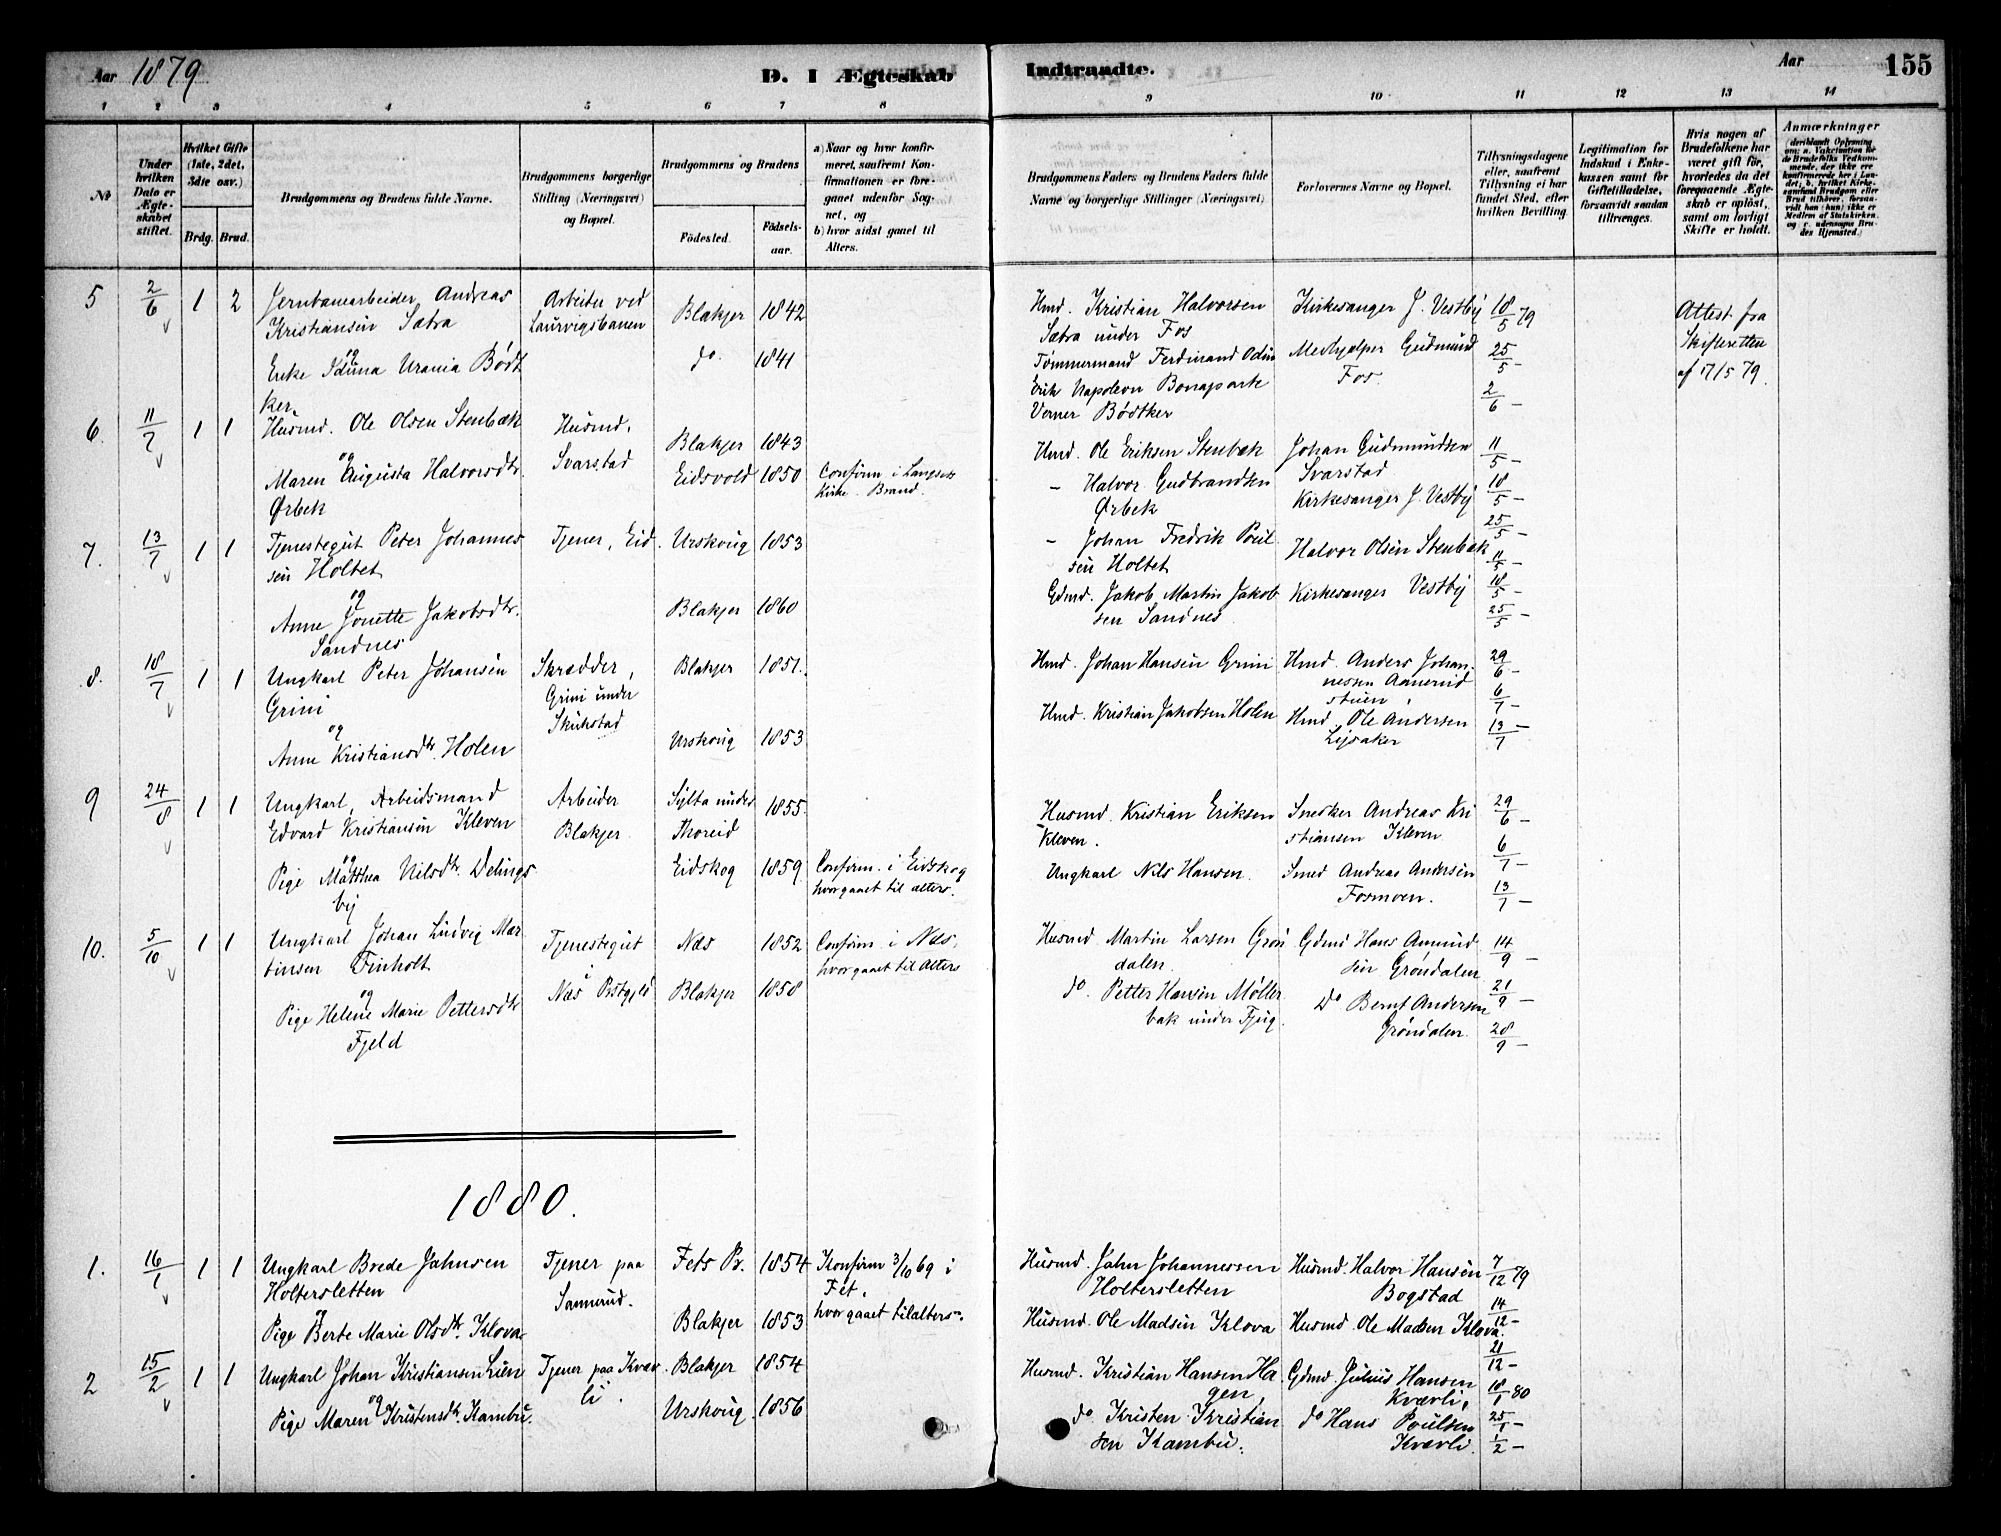 Aar 1879
D. I Ægteskab Indtraadte.
Aar
155
1 2 3 4 5 6 7 8 9 10 11 12 13 14
№
Under hvilken Dato er Ægteskabet stiftet.
Hvilket Gifte (1ste, 2det, 3die osv.)
Brdg. Brud.
Brudgommens og Brudens fulde Navne.
Brudgommens borgerlige Stilling (Næringsvei) og Bopæl.
Brudgommens og Brudens
Födested.
Födselsaar.
a) Naar og hvor konfirmeret, saafremt Konfirmationen er foregaaet udenfor Sognet, og
b) hvor sidst gaaet til Alters.
Brudgommens Faders og Brudens Faders fulde Navne og borgerlige Stillinger (Næringsvei)
Forlovernes Navne og Bopæl.
Tillysningsdagene eller, saafremt Tillysning ei har fundet Sted, efter hvilken Bevilling.
Legitimation for Indskud i Enkekassen samt for Giftetilladelse, forsaavidt saadan tiltrænges.
Hvis nogen af Brudefolkene har været gift för, hvorledes da det foregaaende Ægteskab er oplöst, samt om lovligt Skifte er holdt.
Anmærkninger
5 2/6 1 2
Jernbanearbeider Andreas
Kristiansen Sætra
og
Enke Iduna Urania Bødt
ker.
Arbeider ved
Laurvigsbanen
Blakjer 1842
do. 1841
Hmd. Kristian Halvorsen
Sætra under Fos
Tømmermand Ferdinand Odin
Erik Napoleon Bonaparte
Verner Bødtker
Kirkesanger J. Vestby
Medhjælper Gudmund
Fos.
18/5 79
25/5 –
2/6 –
Attest fra
Skifteretten
af 17/5 79.
6. 11/7 1 1
Husmd. Ole Olsen Stenbæk
og
Maren Augusta Halvorsdtr.
Ørbek
Husmd.
Svarstad
Blakjer 1843
Eidsvold 1850
Confirm. i Langset
Kirke. Brand.
Hmd. Ole Eriksen Stenbæk
– Halvor Gudbrandsen
Ørbek
Johan Gudmundsen
Svarstad
Kirkesanger J. Vestby
11/5 –
18/5 –
25/5 –
7. 13/7 1 1
Tjenestegut Peter Johannes
sen Holtet
og
Anne Jonette Jakobsdtr.
Sandnes
Tjener, Eid.
Urskoug 1853
Blakjer 1860
– Johan Fredrik Poul
sen Holtet
Gdmd. Jakob Martin Jakob
sen Sandnes
Halvor Olsen Stenbæk
Kirkesanger Vestby
11/5 –
18/5 –
25/5 –
8. 18/7 1 1
Ungkarl Peter Johansen
Grini
og
Anne Kristiansdtr. Holen
Skrædder,
Grini under
Skukstad
Blakjer 1851.
Urskoug 1853
Hmd. Johan Hansen Grini
Hmd. Kristian Jakobsen Holen
Hmd. Anders Johan-
nessen Aanerud
stuen
Hmd. Ole Andersen
Lysaker
29/6 –
6/7 –
13/7 –
9 24/8 1 1
Ungkarl, Arbeidsmand
Edvard Kristiansen Kleven
og
Pige Matthea Nilsdtr. Delings
by
Arbeider
Blakjer
Sylta under
Thoreid
1855.
Eidskog 1859
Confirm. i Eidskog
hvor gaaet til alters.
Husmd. Kristian Eriksen
Kleven.
Ungkarl Nils Hansen.
Snedker Andreas Kri
stiansen Kleven
Smed Andreas Andersen
Fosmoen.
29/6 –
6/7 –
13/7 –
10. 5/10 1 1
Ungkarl Johan Ludvig Mar
tinsen Finholt
og
Pige Helene Marie Pettersdtr
Fjeld
Tjenestegut
i
Næs Pstgjld
Næs 1852
Blakjer 1858
Confirm. i Næs,
hvor gaaet til alters
Husmd. Martin Larsen Grøn
dalen.
do. Petter Hansen Møller
bak under Fjug.
Gdmd Hans Amund
sen Grøndalen
Do Bernt Andersen
Grøndalen
14/9 –
21/9 –
28/9 –
1880.
1. 16/1 1 1
Ungkarl Brede Jahnsen
Holtersletten
og
Pige Berte Marie Olsdtr. Klova
Tjener paa
Sannerud.
Fets Pr. 1854
Blakjer 1853
Konfirm 3/10 69 i
Fet,
hvor gaaet til alters.
Husmd. Jahn Johannessen
Holtersletten
Husmd. Ole Madsen Klova
Husmd. Halvor Hansen
Bogstad
Husmd. Ole Madsen Klova.
7/12 79
14/12 –
21/12 –
2 15/2 1 1
Ungkarl Johan Kristiansen Lien
og
Pige Maren Kristensdtr. Kambu.
Tjener paa Kvær
li.
Blakjer 1854
Urskoug. 1856
Husmd. Kristian Hansen Ha
gen,
do. Kristen Kristian
sen Kambu.
Gdmd. Julius Hansen
Kværli,
do Hans Poulsen
Kværli.
18/1 80
25/1 –
1/2 –